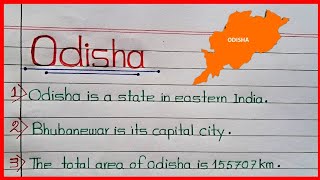 Odisha
ODISHA
1) Odisha is a state in eastern India.
2) Bhubanewar is its capital city.
3) The total area of Odisha is 155707 km.